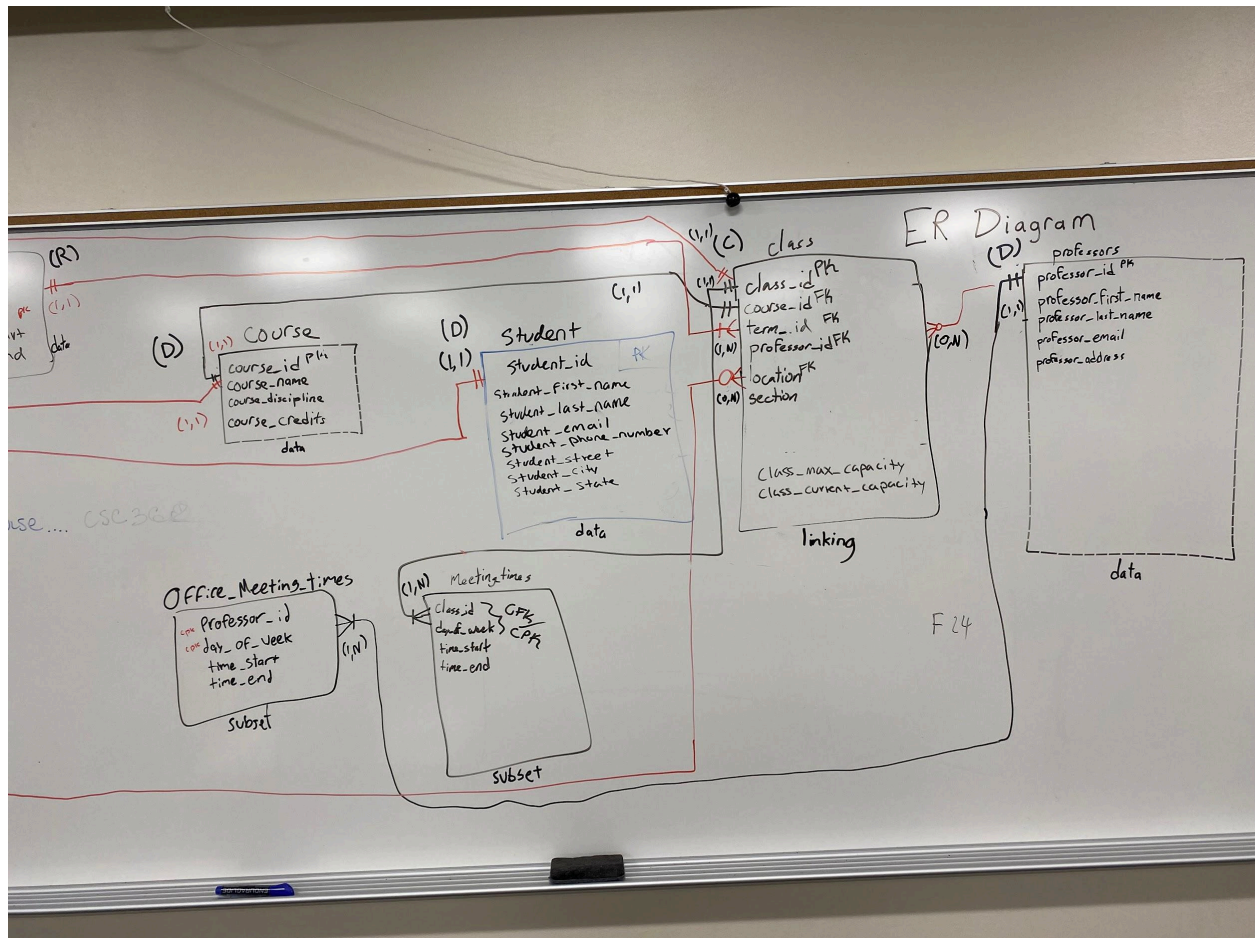 ER Diagram
(R)
(1,1)
data
(D)
(1,1)
Course
course_id PK
course_name
course_discipline
course_credits
(1,1)
data
(D)
(1,1)
Student
student_id PK
student_first_name
student_last_name
student_email
student_phone_number
student_street
student_city
student_state
data
(1,1)
(1,1)
(C)
class
(1,1)
class_id PK
course_id FK
term_id FK
(1,N)
professor_id FK
location FK
(0,N)
section
class_max_capacity
class_current_capacity
linking
(0,N)
(D)
professors
(1,1)
professor_id PK
professor_first_name
professor_last_name
professor_email
professor_address
data
CSC 360
Office_Meeting_times
CPK Professor_id
CPK day_of_week
time_start
time_end
(1,N)
subset
(1,N)
Meeting_times
class_id
CFK
CPK
time_start
time_end
subset
F24